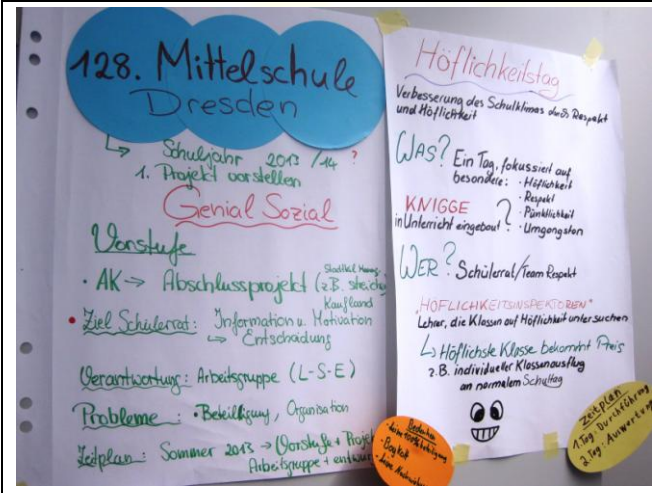 128. Mittelschule
Dresden
↳ Schuljahr 2013/14 ?
1. Projekt vorstellen
Genial Sozial
Vorstufe
· AK → Abschlussprojekt (z.B. streichen
Kaufland
• Ziel Schülerrat: Information u. Motivation
↳ Entscheidung
Verantwortung: Arbeitsgruppe (L-S-E)
Probleme: • Beteiligung, Organisation
Zeitplan: Sommer 2013 → Vorstufe + Projekt
Arbeitsgruppe + entwur
Höflichkeitstag
Verbesserung des Schulklimas durch Respekt
und Höflichkeit
WAS? Ein Tag, fokussiert auf
besondere: · Höflichkeit
· Respekt
· Pünktlichkeit
· Umgangston
KNIGGE
in Unterricht eingebaut ?
WER? Schülerrat/Team Respekt
"HÖFLICHKEITSINSPEKTOREN"
Lehrer, die Klassen auf Höflichkeit untersuchen
↳ Höflichste Klasse bekommt Preis
z.B. individueller Klassenausflug
an normalem Schultag
Gedanken
· Boykott
· keine
Zeitplan
1. Tag: Durchführung
2. Tag: Auswertung